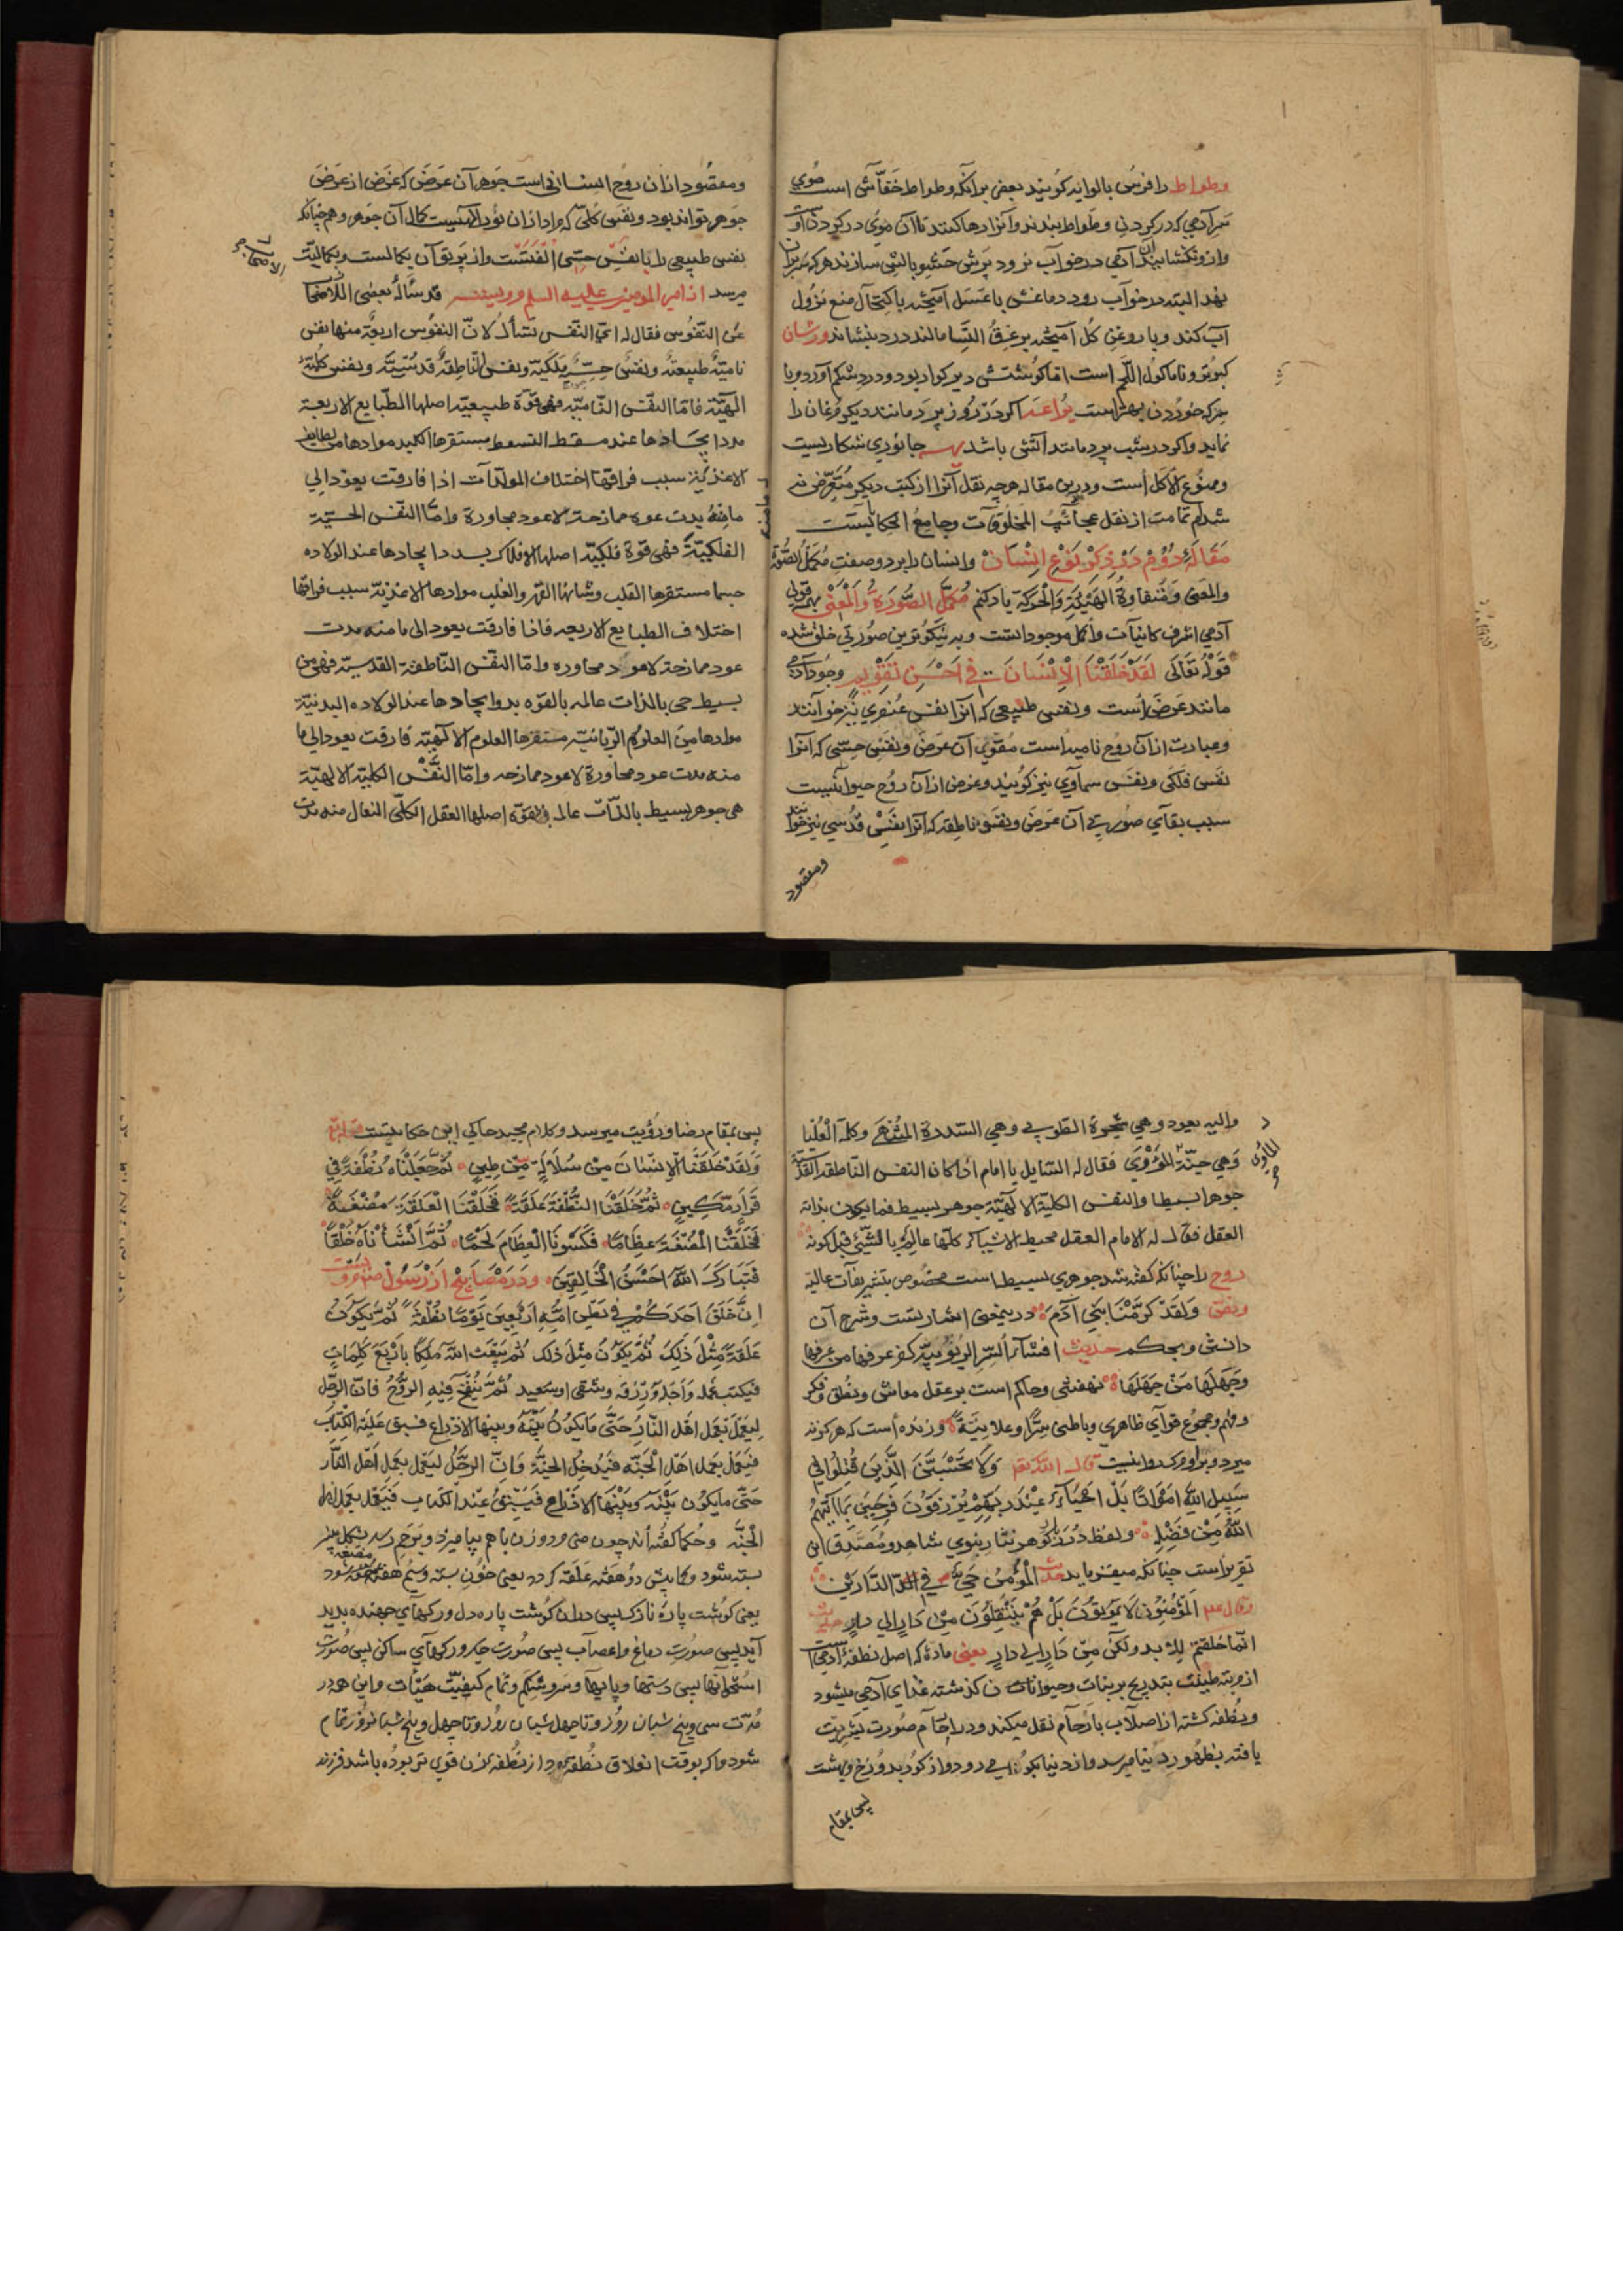 وطواط را فرس بالوانه گویند بعضی برانکه وطواط خفاش است موی
سر آدمی که در کردن وطواط بندند و آنرا رها کنند تا آن موی در کردن او
نهد البته در خواب رود دماغش با عسل آمیخته باکتحال منع نزول
آب کند و با روغن کل آمیخته بر عرق النسا مالند درد بنشاند ورشان
کبوتر و ناماکول اللحم است اما کوشتش دیر کوار بود و درد شکم آورد و با
سرکه خوردن بهتر است یراعه اکر در روز پرد مانند دیکر مرغان را
نماید و اکر در شب پرد مانند آتش باشد جانوری شکاریست
وممنوع الاکل است و درین مقاله هرچه نقل آنرا از کتب دیکر متعرض نه
شدم تمامت از نقل عجائب المخلوقات و جامع الحکایاتست
مقاله دوم در ذکر نوع انسان وانسان را بر دو صفت مکمل الصورة
والمعنی و نقاوة الهیئة والحرکة یاد کنم مکمل الصورة والمعنی بهمه قولی
آدمی اشرف کاینات و اکمل موجوداتست و به نیکوترین صورتی خلق شده
قوله تعالی لقد خلقنا الانسان فی احسن تقویم وجود آدمی
مانند عرض است ونفس طبیعی که آنرا نفس عنصری نیز خوانند
وعبارت از آن روح نامیه است مقوی آن عرض ونفس حسی که آنرا
نفس فلکی ونفس سماوی نیز گویند وغرض از آن روح حیوانیست
سبب بقای صورت آن عرض ونفس ناطقه که آنرا نفس قدسی نیز خوانند
ومقصود
ومقصود از آن روح انسانی است جوهر آن عرض که غرض از عرض
جوهر تواند بود ونفس کلی که مراد از آن نور الهیست کمال آن جوهر وهمچنانکه
نفس طبیعی را با نفس حسی الفتست واز پرتو آن بکمالست وبکمالیت
میرسد از امیر المومنین علیه السلم مرویست قد ساله بعض
عن النفوس فقال له ای النفس تسأل لان النفوس اربعة منها نفس
نامیة طبیعة ونفس حسیة فلکیة ونفس ناطقة قدسیة ونفس کلیة
الهیة فاما النفس النامیة فهی قوة طبیعیة اصلها الطبایع الاربعة
بدا ایجادها عند مسقط النسط مستقرها الکبد موادها من لطایف
الاغذیة سبب فراقها اختلاف المولدات اذا فارقت یعود الی
مامنه بدت عود ممازجة لاعود مجاورة واما النفس الحسیة
الفلکیة فهی قوة فلکیة اصلها الافلاک بدا ایجادها عند الولاده
جسما مستقرها القلب وشانها القهر والغلب موادها الاغذیة سبب فراقها
اختلاف الطبایع الاربعه فاذا فارقت یعود الی مامنه بدت
عود ممازجة لاعود مجاوره واما النفس الناطقة القدسیة فهی من
بسیط حی بالذات عالمه بالقوه بدو ایجادها عند الولاده البدنیة
موادها من العلوم الربانیة مستقرها العلوم الالهیة فارقت یعود الی ما
منه بدت عود مجاورة لاعود ممازجه واما النفس الکلیة الالهیة
هی جوهر بسیط بالذات عالمه بالقوه اصلها العقل الکلی الفعال منه بدت
والیه یعود وهی شجرة الطوبی وهی السدرة المنتهی وکلمة العلیا
وهی جنة الماوی فقال له السایل یا امام اذا کان النفس الناطقه القدسیة
جوهرا بسیطا والنفس الکلیة الالهیة جوهر بسیط فما یکون بذاته
العقل فقال له الامام العقل محیط الاشیاء کلها عالم بالشیء قبل کونه
روح را چنانکه گفته شد جوهری بسیط است مخصوص بتشریفات عالیه
ولقد کرمنا بنی آدم درینمعنی اشارتست وشرح آن
دانش وبحکم حدیث افشاء السر الربوبیة کفر عرفها من عرفها
وجهلها من جهلها نهفتنی وحاکم است بر عقل معاش ونطق وفکر
وفهم ومجموع قوای ظاهری وباطنی سرا وعلانیة وزنده است که هرکز نه
میرد وبر او مرک روا نیست قال الله تعم ولا تحسبن الذین قتلوا فی
سبیل الله امواتا بل احیاء عند ربهم یرزقون فرحین بما آتیهم
الله من فضله ولفظ درر کوهر نثار نبوی شاهد ومصدق این
تقریر است چنانکه میفرماید حدیث المؤمن حی فی الدارین
وقال علیه المؤمنون لا یموتون بل هم ینتقلون من دار الی دار
انما خلقتم للابد ولکن من دار الی دار یعنی ماده که اصل نطفه آدمی است
از مرتبه طینت بتدریج بر نبات وحیوانات کذشته غذای آدمی میشود
ونطفه کشته از اصلاب بارحام نقل میکند ودر ارحام صورت بشریت
یافته بظهور دنیا میرسد واز دنیا بکور می رود واز کور بدوزخ وبهشت
پس بمقام
پس بمقام رضا ورؤیت میرسد وکلام مجید حاکی این حکایتست قوله تع
ولقد خلقنا الانسان من سلالة من طین ثم جعلناه نطفة فی
قرار مکین ثم خلقنا النطفة علقة فخلقنا العلقة مضغة
فخلقنا المضغة عظاما فکسونا العظام لحما ثم انشأناه خلقا
فتبارک الله احسن الخالقین ودر مصابیح از رسول صلعم مرویست
ان خلق احدکم فی بطن امه اربعین یوما نطفة ثم یکون
علقة مثل ذلک ثم یکون مثل ذلک ثم یبعث الله ملکا باربع کلمات
فیکتب عمله واجله ورزقه وشقی او سعید ثم ینفخ فیه الروح فان الرجل
لیعمل بعمل اهل النار حتی مایکون بینه وبینها الا ذراع فسبق علیه الکتاب
فیعمل بعمل اهل الجنه فیدخل الجنة وان الرجل لیعمل بعمل اهل النار
حتی مایکون بینه وبینها الا ذراع فیسبق عند الکتاب فیعمل بعمل اهل
الجنه وحکما کفته اند چون منی مرد وزن باهم بیامیزد وبرحم رسد
بسته شود وکمابیش دو هفته علقه کردد یعنی خون بسته وسیم هفته مضغه شود
یعنی کوشت پاره نازک پس دران کوشت پاره دل ورکهای جهنده پدید
آید پس صورت دماغ واعصاب پس صورت جکر ورکهای ساکن پس صورت
استخوانها پس دستها وپایها وسر وشکم وتمام کیفیت هیات واین همه در
مدت سی وپنج شبان روز وتا چهل شبان روز وتا چهل وپنج شبانروز تمام
شود واکر بوقت انغلاق نطفه مرد از نطفه زن قوی تر بوده باشد فرزند